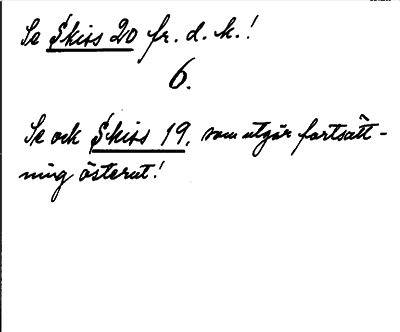 Se Skiss 20 fr. d. k.!
6.
Se och Skiss 19, som utgör fortsätt-
ning österut!